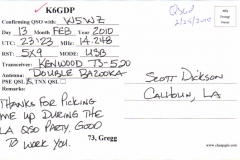 K6GDP
Confirming QSO with W5WZ
Day 13 Month FEB Year 2010
UTC: 23:23 MHz 14.248
RST: 5X9 MODE: USB
Transceiver: KENWOOD TS-520
Antenna: DOUBLE BAZOOKA
PSE QSL TNX QSL
Remarks:
THANKS FOR PICKING
ME UP DURING THE
LA QSO PARTY. GOOD
TO WORK YOU.
73, Gregg
QSLd
SCOTT DICKSON
CALHOUN, LA
www.cheapqsls.com